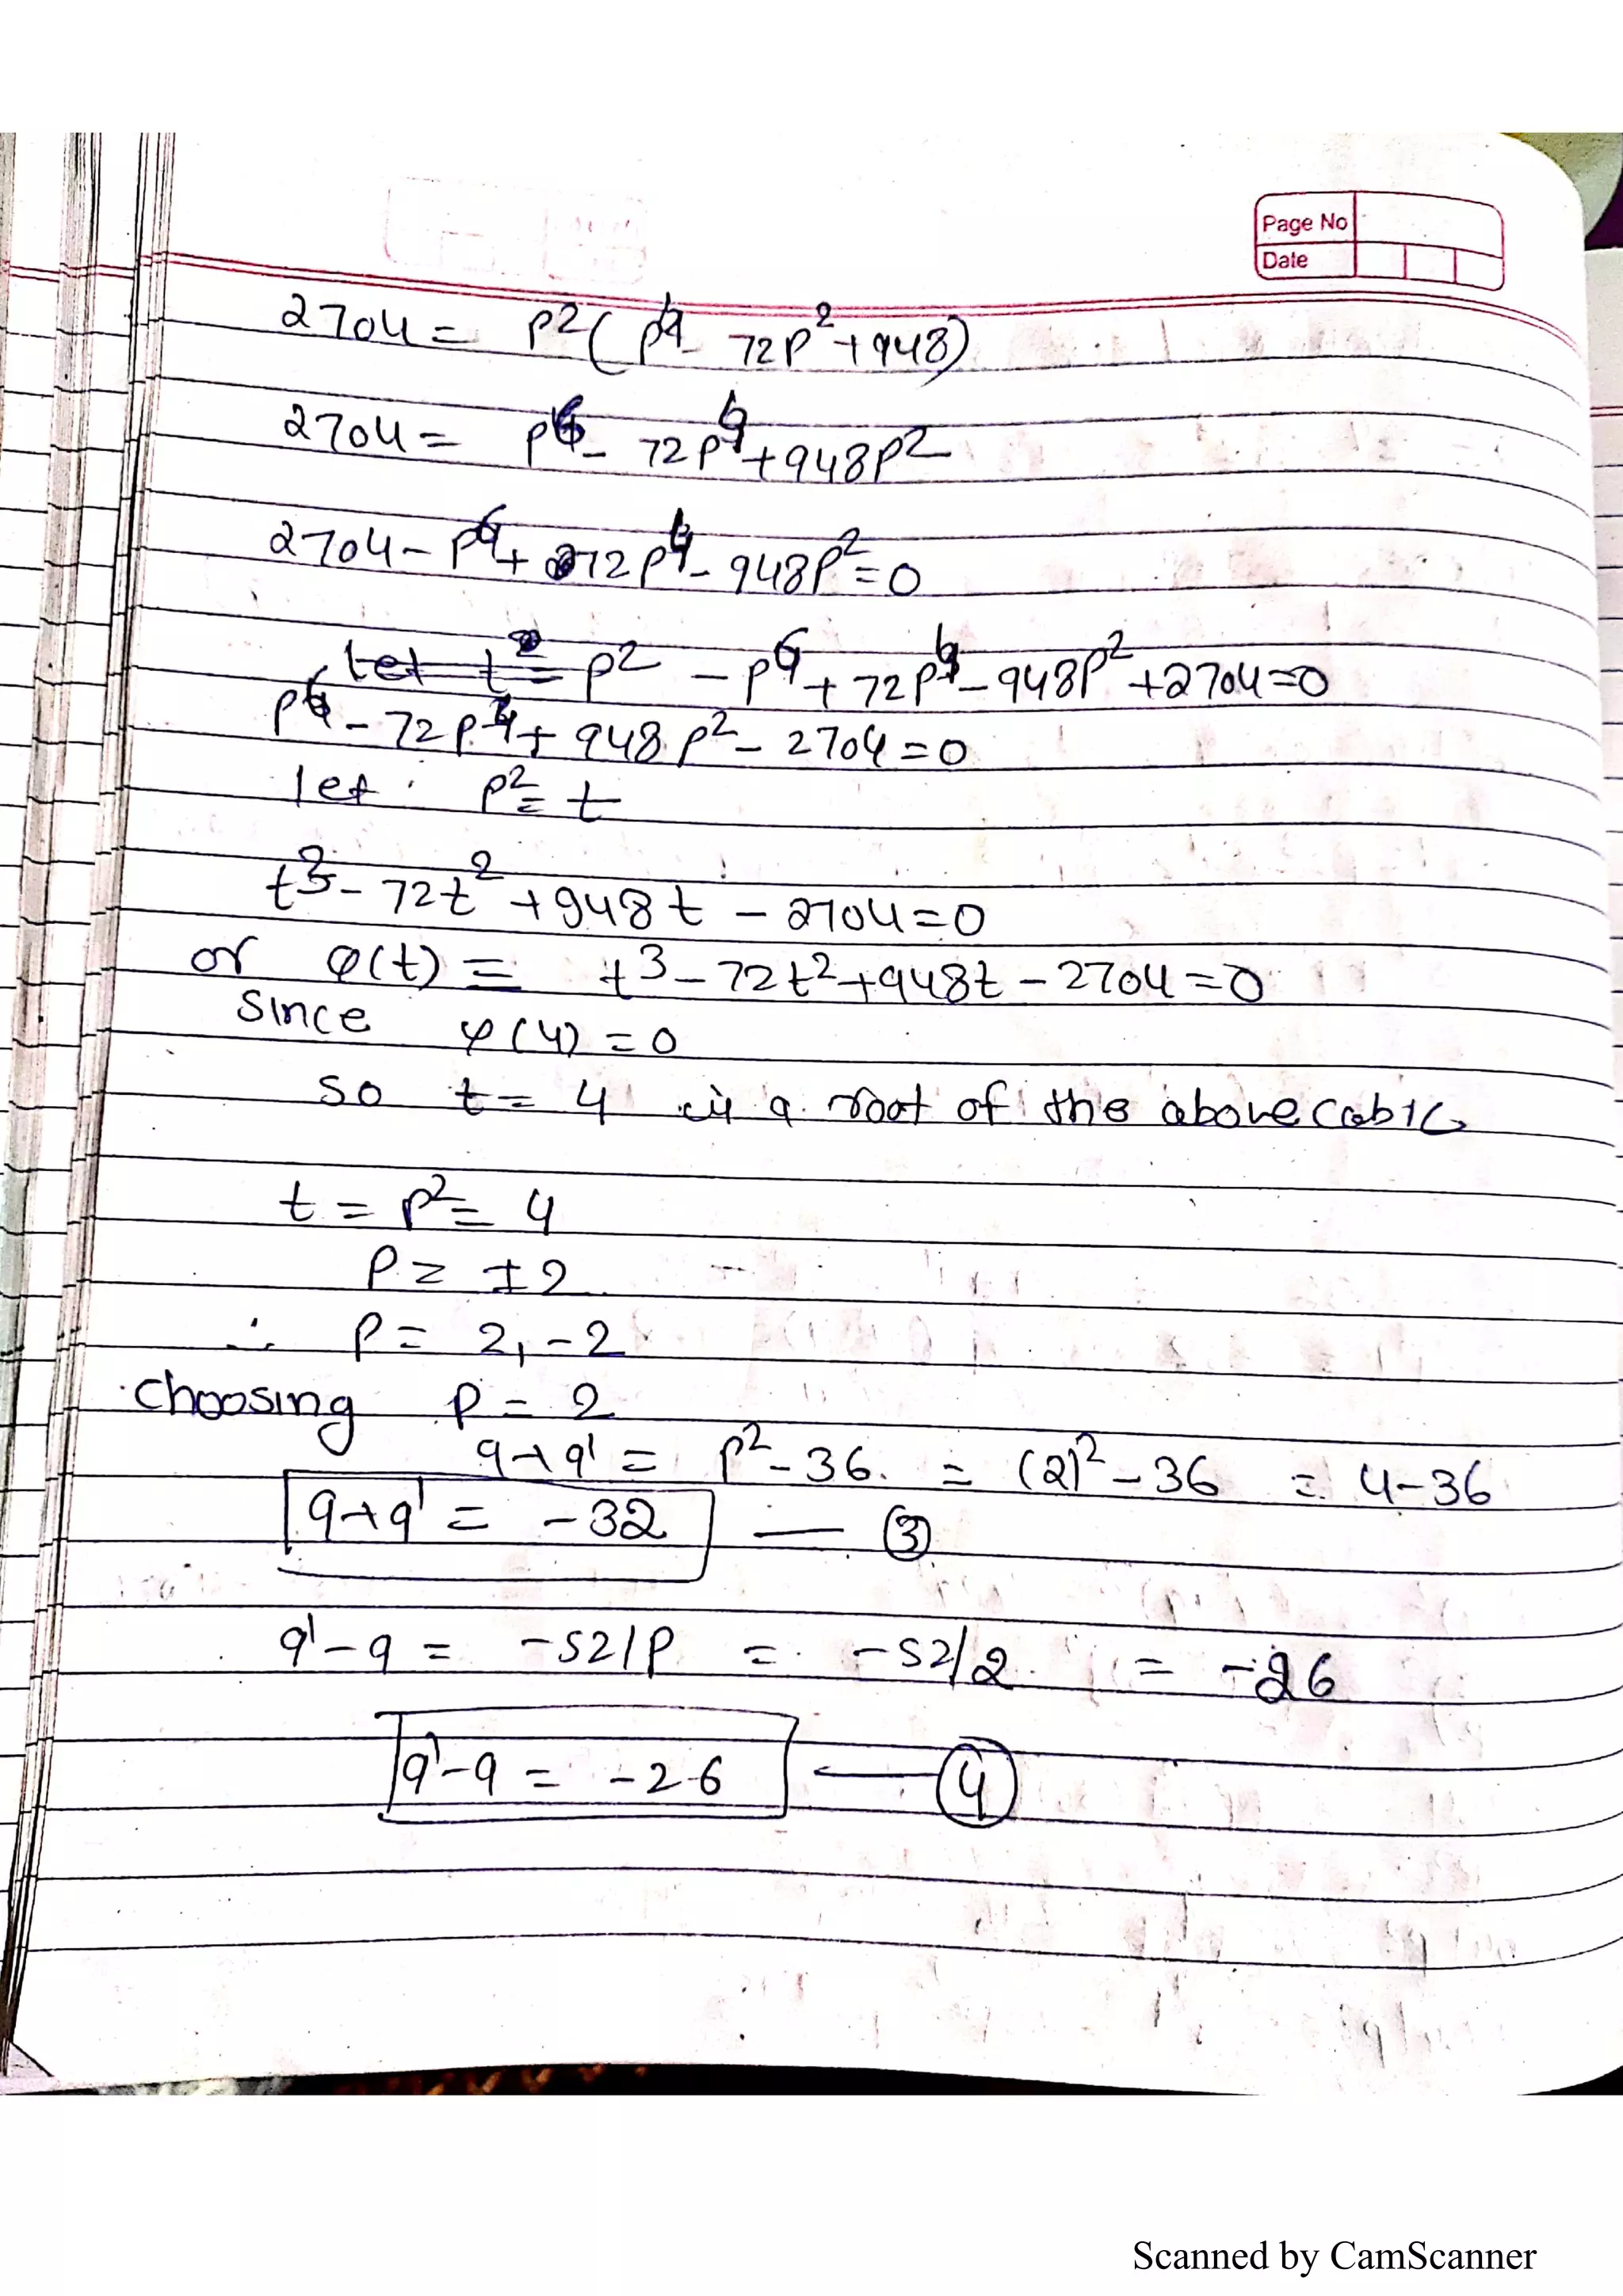 Page No
Date
2704 = p²(p⁴ - 72p² + 948)
2704 = p⁶ - 72p⁴ + 948p²
2704 - p⁶ + 72p⁴ - 948p² = 0
let t² = p² - p⁶ + 72p⁴ - 948p² + 2704 = 0
p⁶ - 72p⁴ + 948p² - 2704 = 0
let p² = t
t³ - 72t² + 948t - 2704 = 0
or φ(t) = t³ - 72t² + 948t - 2704 = 0
since φ(4) = 0
so t = 4 is a root of the above cubic
t = p² = 4
p = ±2
∴ p = 2, -2
choosing p = 2
q + q' = p² - 36 = (2)² - 36 = 4 - 36
q + q' = -32 — ③
q' - q = -52/p = -52/2 = -26
q' - q = -26 — ④
Scanned by CamScanner